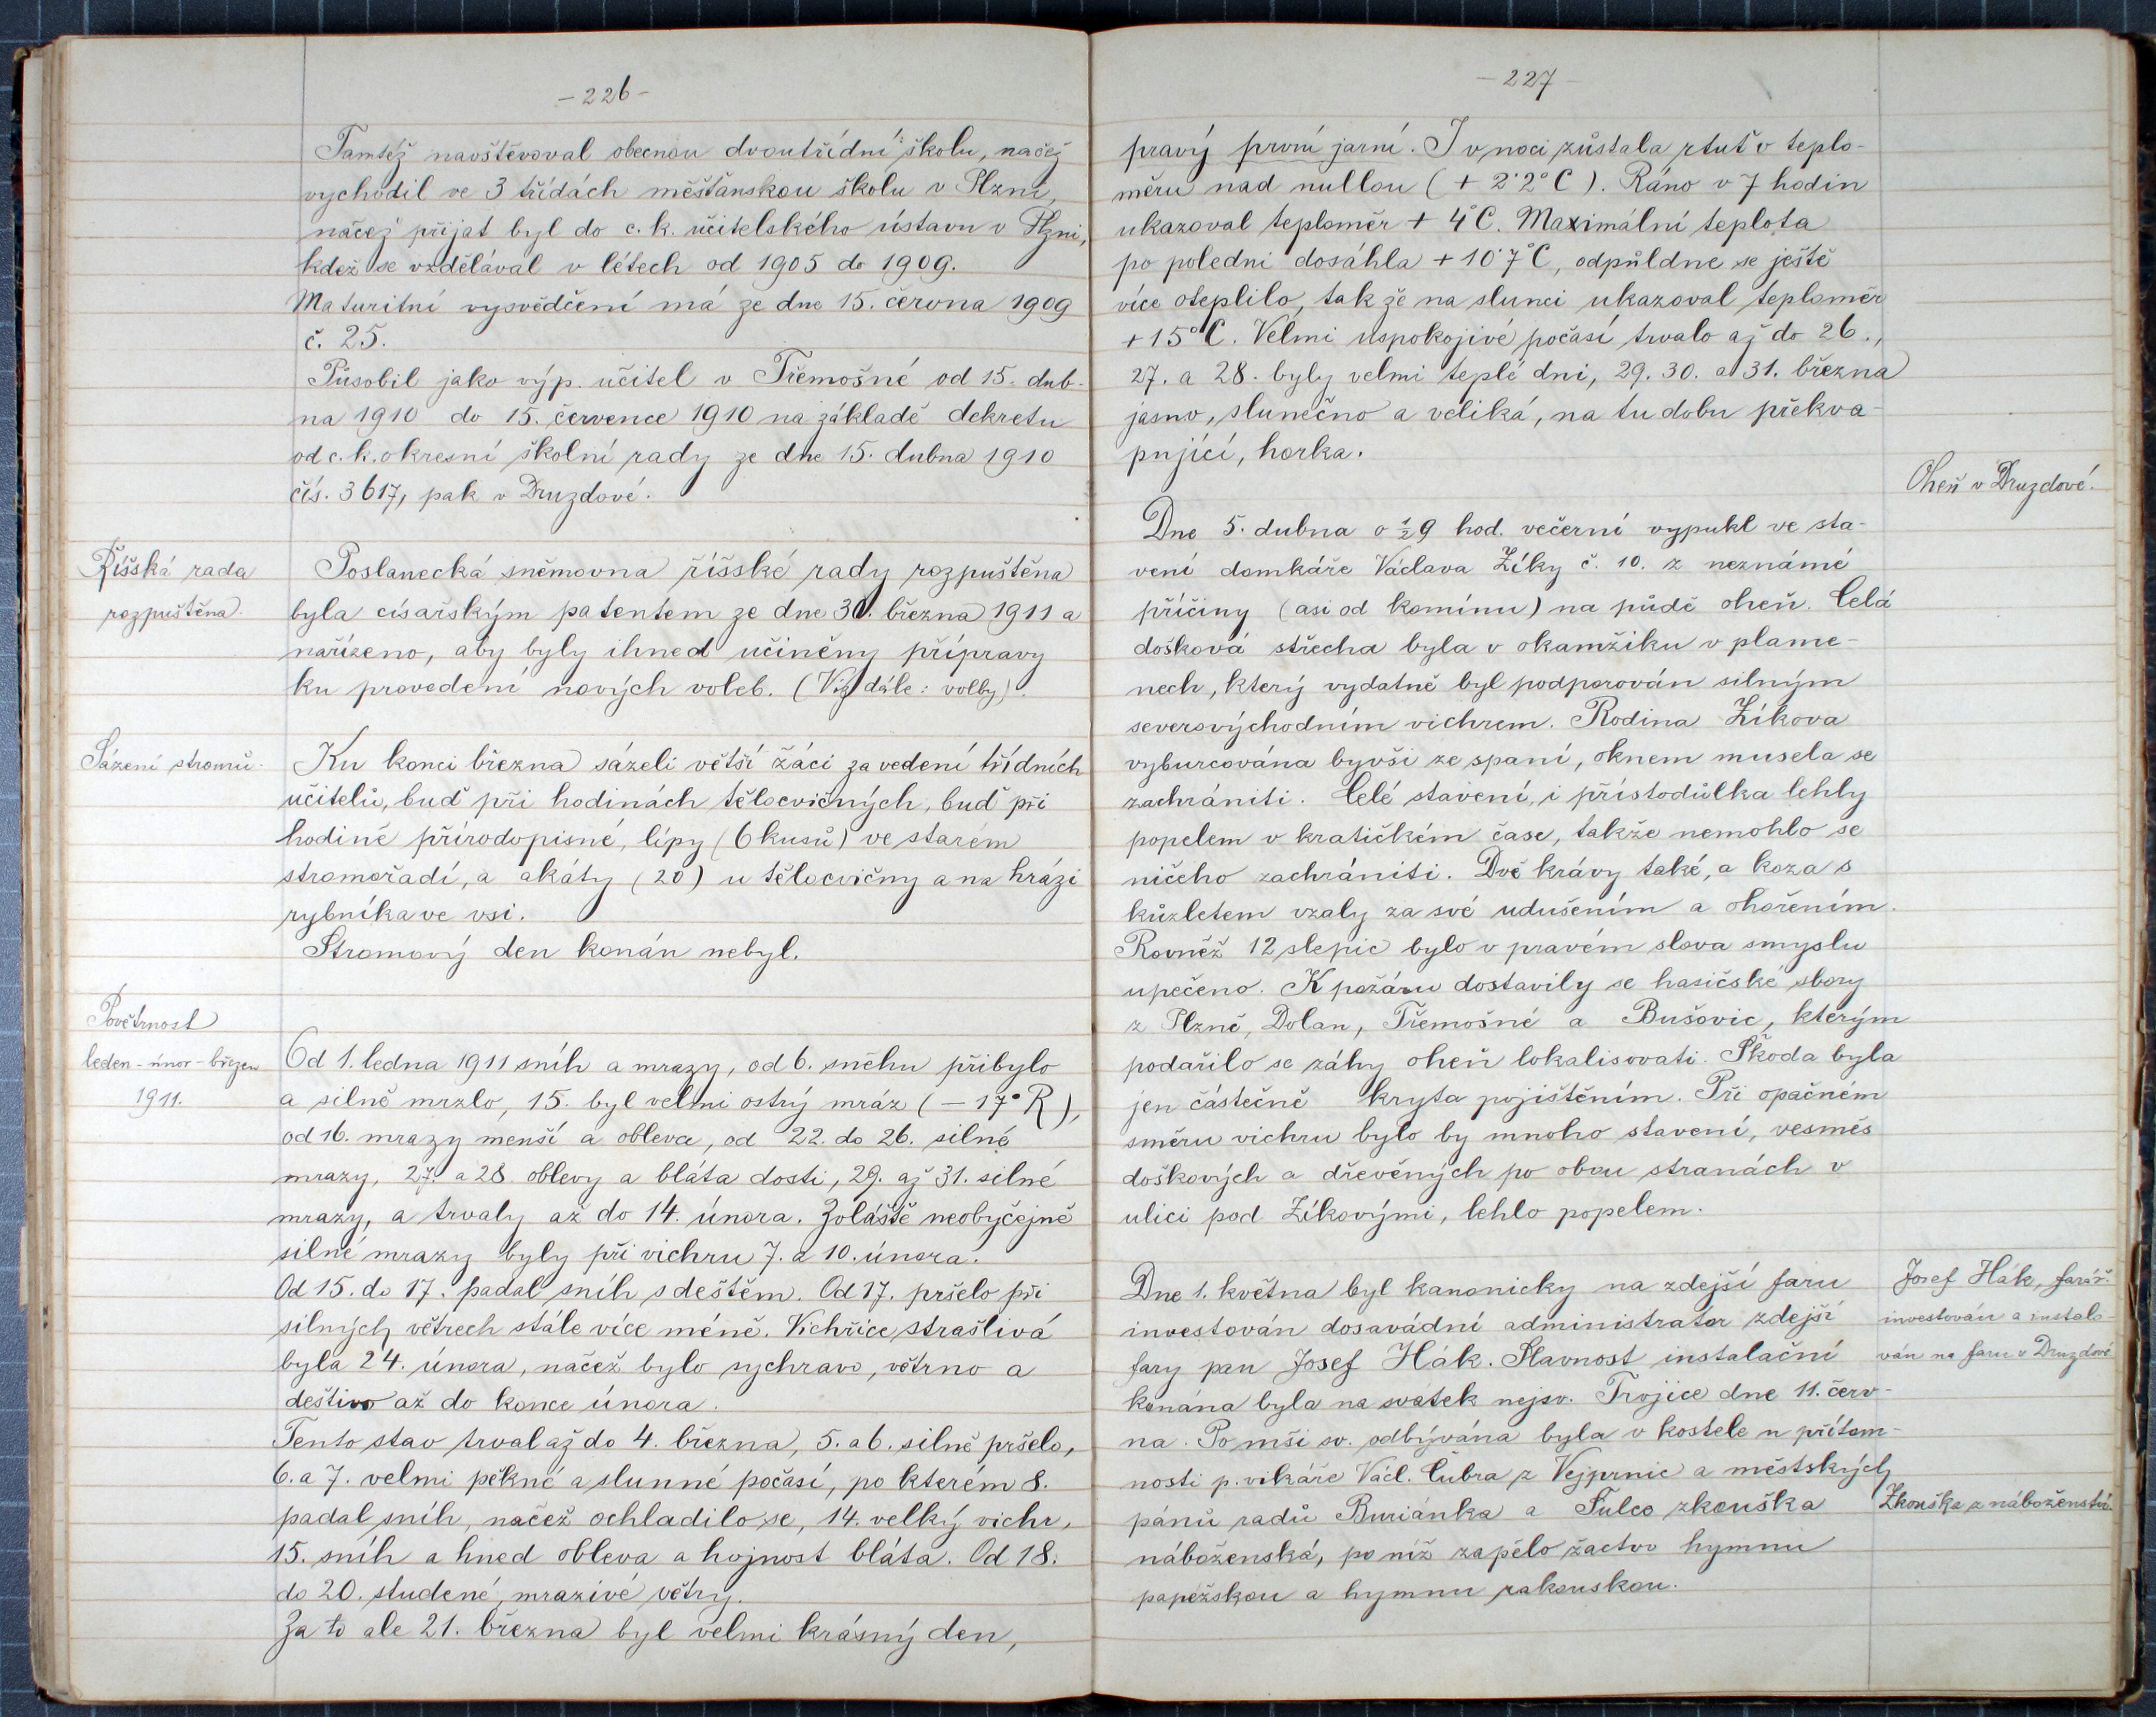 -226-
Tamtéž navštěvoval obecnou dvoutřídní školu, načež
vychodil ve 3 třídách měšťanskou školu v Plzni,
načež přijat byl do c. k. učitelského ústavu v Plzni,
kdež se vzdělával v létech od 1905 do 1909.
Maturitní vysvědčení má ze dne 15. června 1909
č. 25.
Působil jako výp. učitel v Třemošné od 15. dub-
na 1910 do 15. července 1910 na základě dekretu
od c. k. okresní školní rady ze dne 15. dubna 1910
čís. 3617, pak v Druzdové.
Říšská rada
rozpuštěna.
Poslanecká sněmovna říšské rady rozpuštěna
byla císařským patentem ze dne 30. března 1911 a
nařízeno, aby byly ihned učiněny přípravy
ku provedení nových voleb. (Viz dále: volby).
Sázení stromů.
Ku konci března sázeli větší žáci za vedení třídních
učitelů, buď při hodinách tělocvičných, buď při
hodině přírodopisné, lípy (6 kusů) ve starém
stromořadí, a akáty (20) u tělocvičny a na hrázi
rybníka ve vsi.
Stromový den konán nebyl.
Povětrnost
leden - únor - březen
1911.
Od 1. ledna 1911 sníh a mrazy, od 6. sněhu přibylo
a silně mrzlo, 15. byl velmi ostrý mráz (- 17° R),
od 16. mrazy menší a obleva, od 22. do 26. silné
mrazy, 27. a 28. oblevy a bláta dosti, 29. až 31. silné
mrazy, a trvaly až do 14. února. Zoláště neobyčejně
silné mrazy byly při vichru 7. a 10. února.
Od 15. do 17. padal sníh s deštěm. Od 17. pršelo při
silných větrech stále více méně. Vichřice strašlivá
byla 24. února, načež bylo sychravo, větrno a
deštivo až do konce února.
Tento stav trval až do 4. března, 5. a 6. silně pršelo,
6. a 7. velmi pěkné a slunné počasí, po kterém 8.
padal sníh, načež ochladilo se, 14. velký vichr,
15. sníh a hned obleva a hojnost bláta. Od 18.
do 20. studené, mrazivé větry.
Za to ale 21. března byl velmi krásný den,
-227-
pravý první jarní. I v noci zůstala rtuť v teplo-
měru nad nullou (+ 2·2° C). Ráno v 7 hodin
ukazoval teploměr + 4° C. Maximální teplota
po poledni dosáhla + 10·7° C, odpůldne se ještě
více oteplilo, tak že na slunci ukazoval teploměr
+ 15° C. Velmi uspokojivé počasí trvalo až do 26.,
27. a 28. byly velmi teplé dni, 29. 30. a 31. března
jasno, slunečno a veliká, na tu dobu překva-
pující, horka.
Oheň v Druzdové.
Dne 5. dubna o ½ 9 hod. večerní vypukl ve sta-
vení domkáře Václava Zíky č. 10. z neznámé
příčiny (asi od komínu) na půdě oheň. Celá
došková střecha byla v okamžiku v plame-
nech, který vydatně byl podporován silným
severovýchodním vichrem. Rodina Zíkova
vyburcována byvši ze spaní, oknem musela se
zachrániti. Celé stavení, i přístodůlka lehly
popelem v kratičkém čase, takže nemohlo se
ničeho zachrániti. Dvě krávy také, a koza s
kůzletem vzaly za své udušením a ohořením.
Rovněž 12 slepic bylo v pravém slova smyslu
upečeno. K požáru dostavily se hasičské sbory
z Plzně, Dolan, Třemošné a Bušovic, kterým
podařilo se záhy oheň lokalisovati. Škoda byla
jen částečně kryta pojištěním. Při opačném
směru vichru bylo by mnoho stavení, vesměs
doškových a dřevěných po obou stranách v
ulici pod Zíkovými, lehlo popelem.
Josef Hák, farář.
investován a instalo-
ván na faru v Druzdové
Dne 1. května byl kanonicky na zdejší faru
investován dosavádní administrátor zdejší
fary pan Josef Hák. Slavnost instalační
konána byla na svátek nejsv. Trojice dne 11. červ-
na. Po mši sv. odbývána byla v kostele u přítom-
nosti p. vikáře Václ. Čubra z Vejprnic a městských
Zkouška z náboženství.
pánů radů Buriánka a Fulco zkouška
náboženská, po níž zapělo žactvo hymnu
papežskou a hymnu rakouskou.